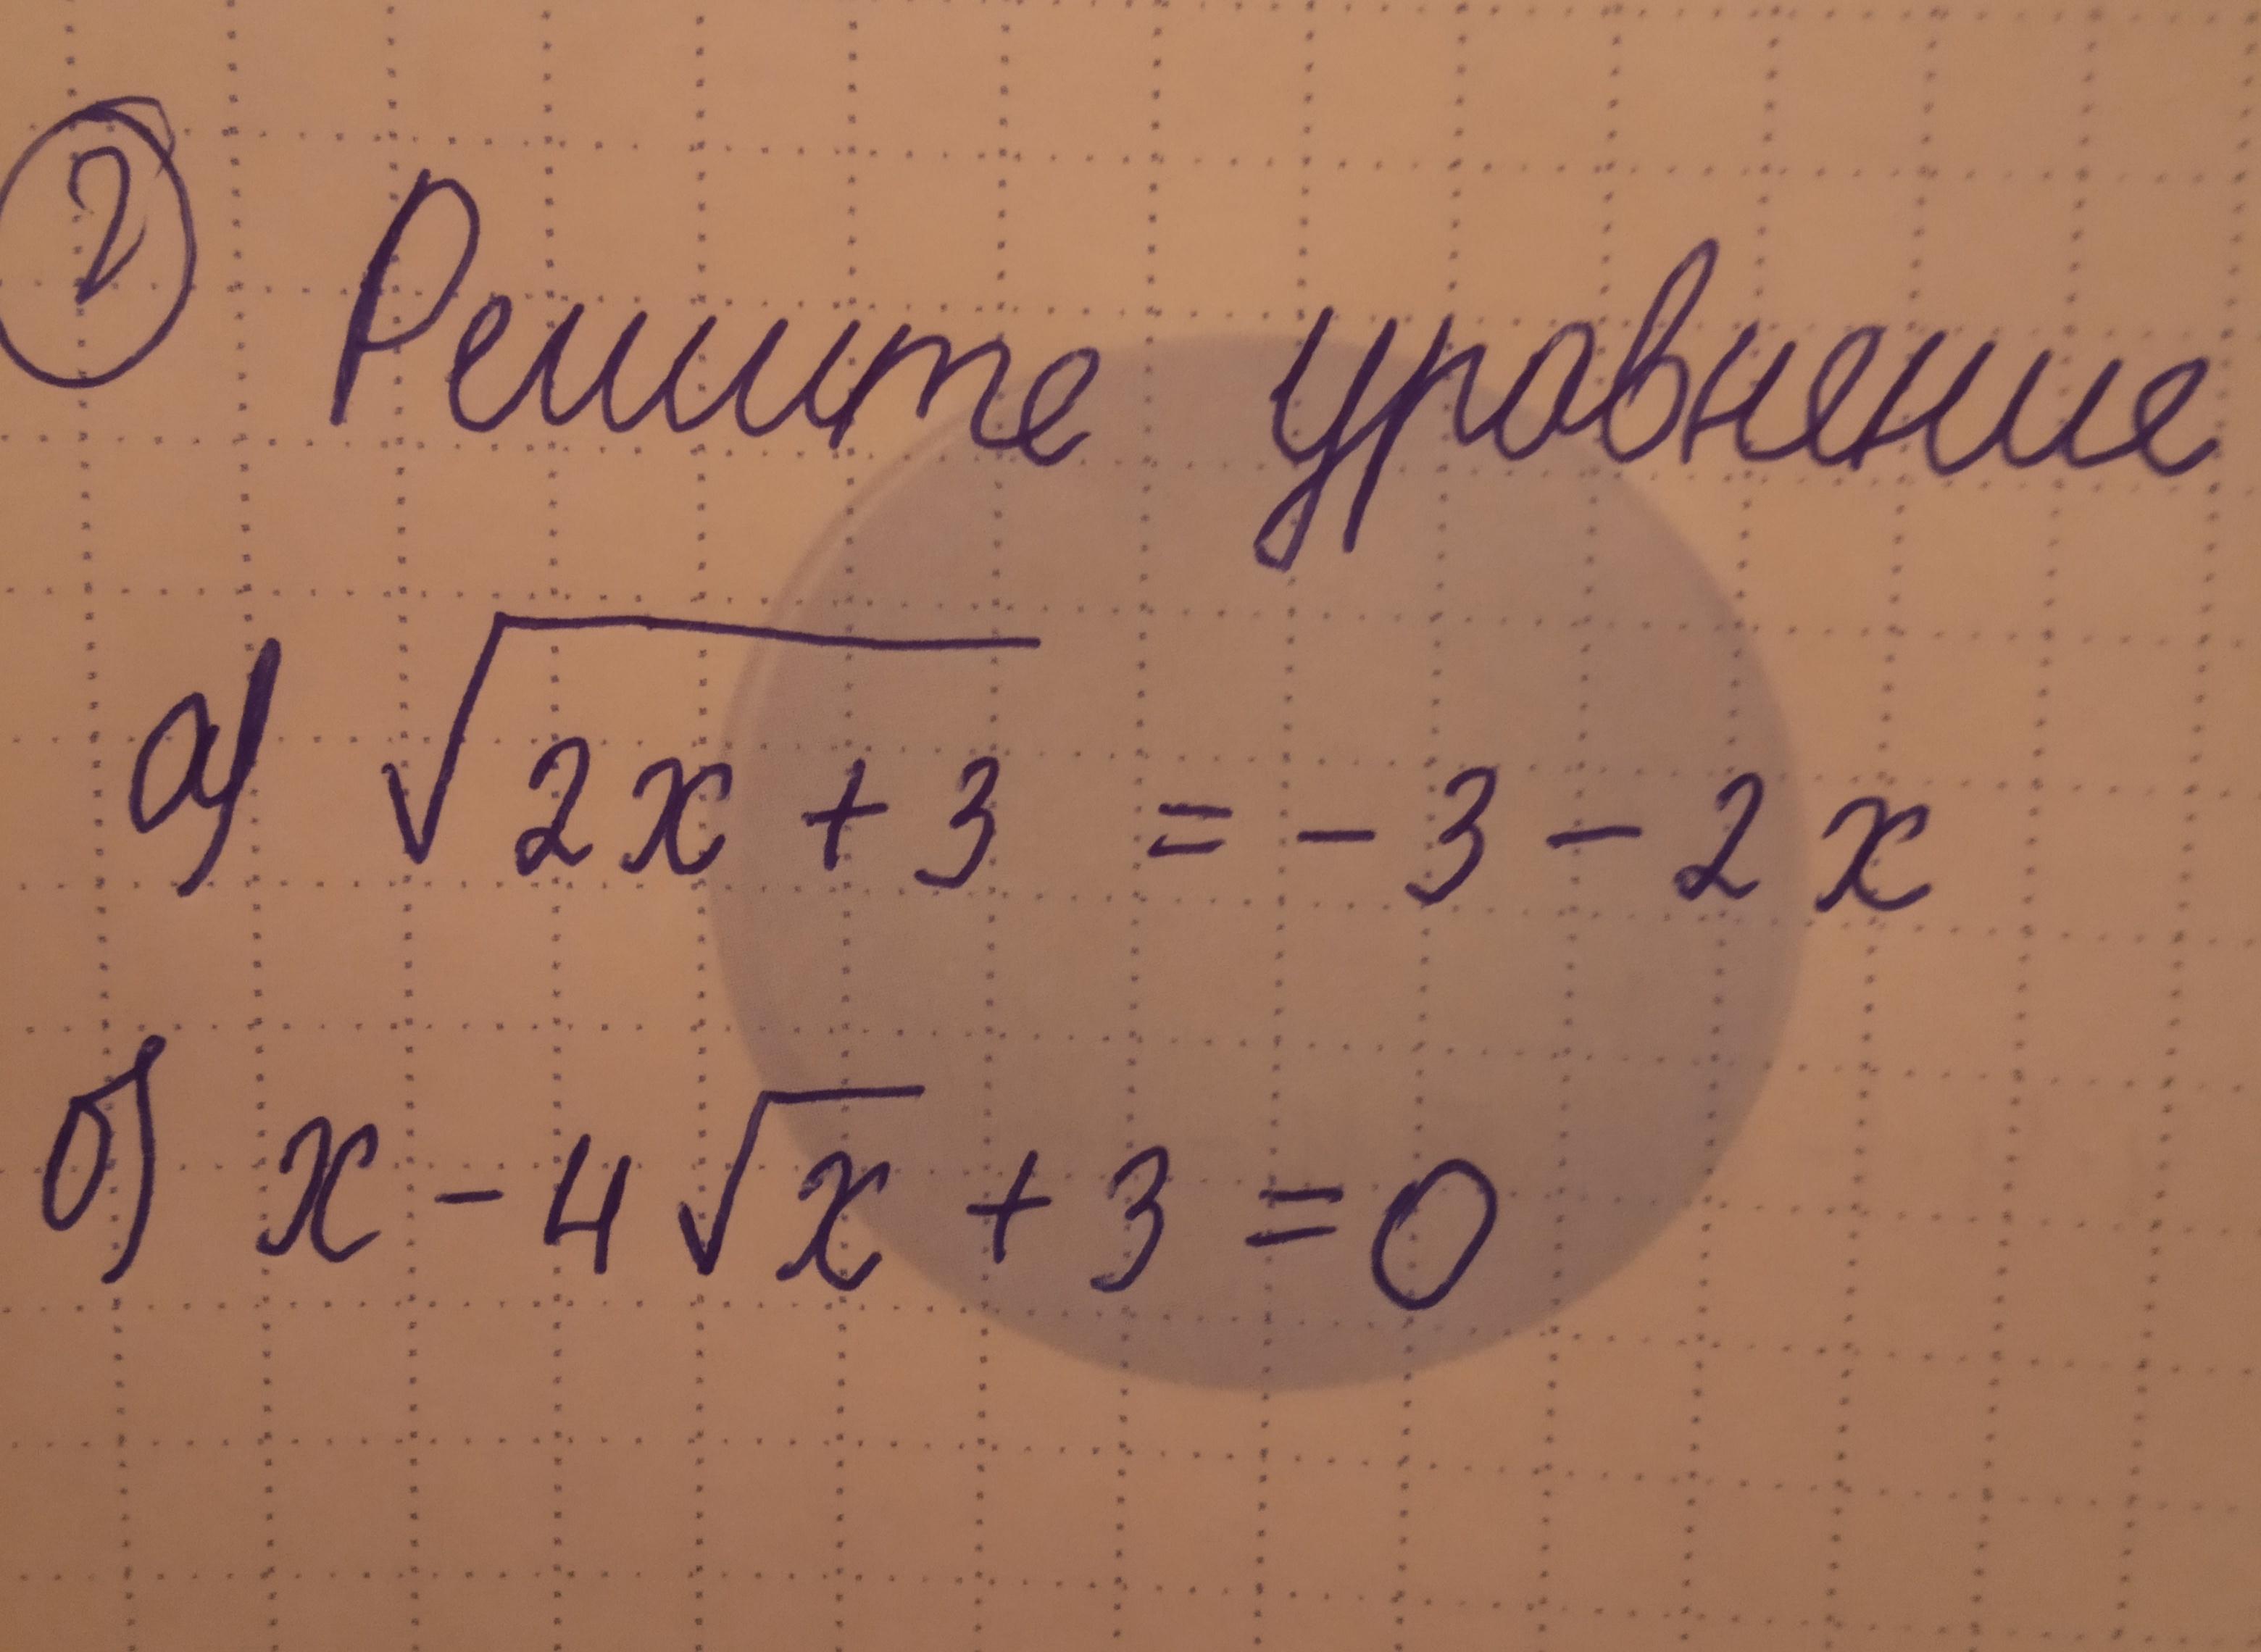 2 Решите уровнение
а) √2x + 3 = - 3 - 2x
б) x - 4√x + 3 = 0